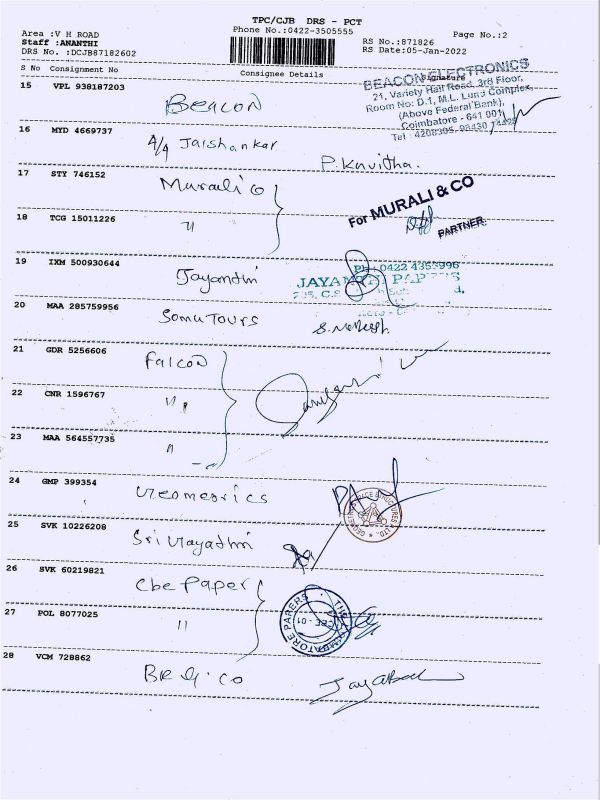 TPC/CJB DRS - PCT
Area :V H ROAD
Phone No.:0422-3505555
Page No.:2
Staff :ANANTHI
RS No.:871826
DRS No. :DCJB87182602
RS Date:05-Jan-2022
S No Consignment No
Consignee Details
Signature
15 VPL 938187203
Beacon
BEACON ELECTRONICS
21, Variety Hall Road, 3rd Floor,
Room No: D.1, M.L. Lund Complex,
(Above Federal Bank),
Coimbatore - 641 001
Tel : 4208305, 93430
16 MYD 4669737
A/4 Jaishankar
P. Kavitha.
17 STY 746152
Murali Co
For MURALI & CO
PARTNER
18 TCG 15011226
"
19 IXM 500930644
Jayanthi
PH : 0422 4355996
JAYANTHI PAPERS
20 MAA 285759956
Somu Tours
21 GDR 5256606
Falcon
22 CNR 1596767
"
23 MAA 564557735
"
24 GMP 399354
Geometrics
25 SVK 10226208
Sri
26 SVK 60219821
Cbe Paper
27 POL 8077025
"
28 VCM 728862